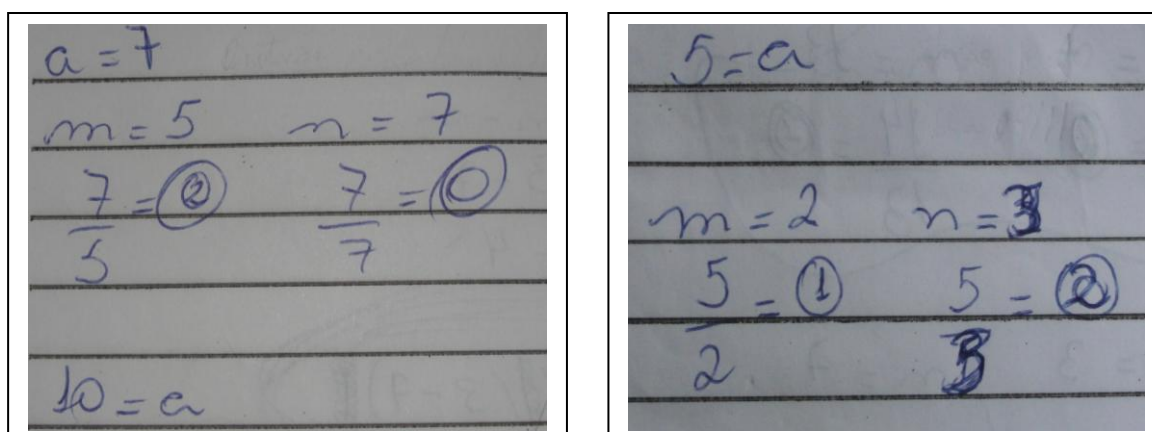 a = 7
m = 5 n = 7
7/5 = 2 7/7 = 0
10 = a
5 = a
m = 2 n = 3
5/2 = 1 5/3 = 2